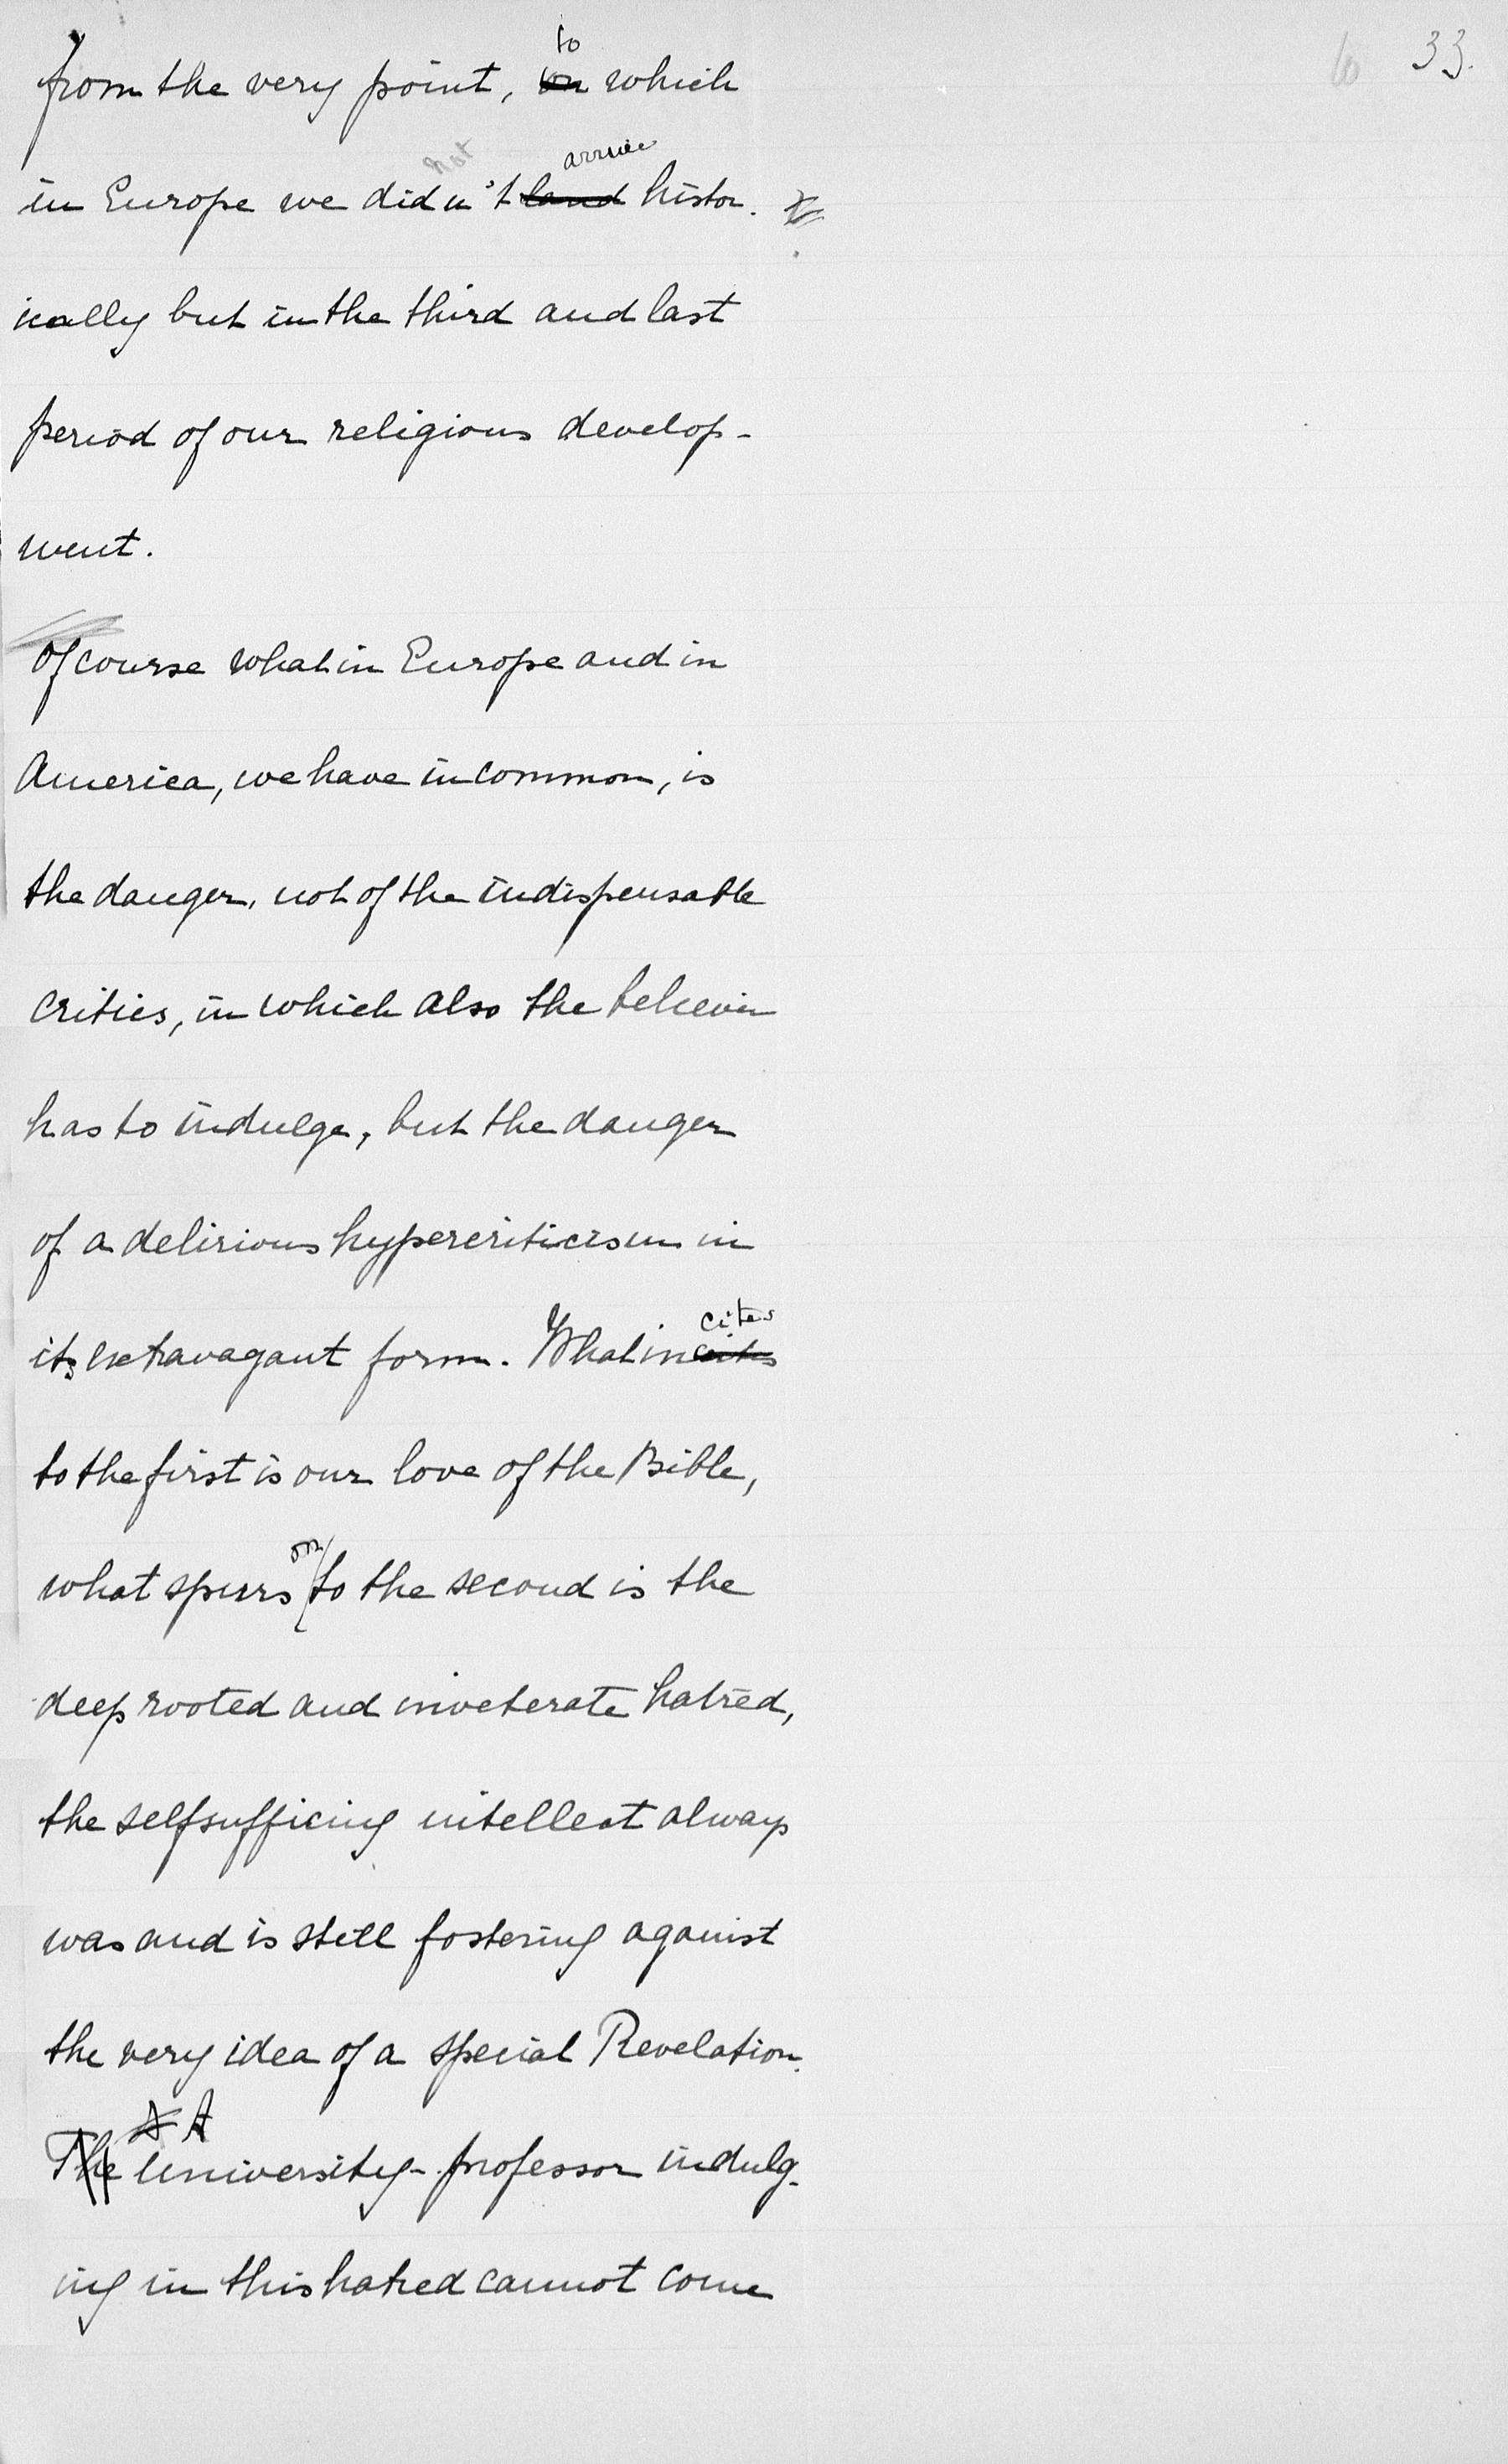 33.
to
from the very point, on which
not arrive
in Europe we didn't land histor.
ically but in the third and last
period of our religious develop-
ment.
Of course what in Europe and in
America, we have in common, is
the danger, not of the indispensable
critics, in which also the believer
has to indulge, but the danger
of a delirious hypercriticism in
cites
its extravagant form. What incites
to the first is our love of the Bible,
on
what spurs to the second is the
deep rooted and inveterate hatred,
the selfsufficing intellect always
was and is still fostering against
the very idea of a special Revelation.
A A
The University-professor indulg-
ing in this hatred cannot come